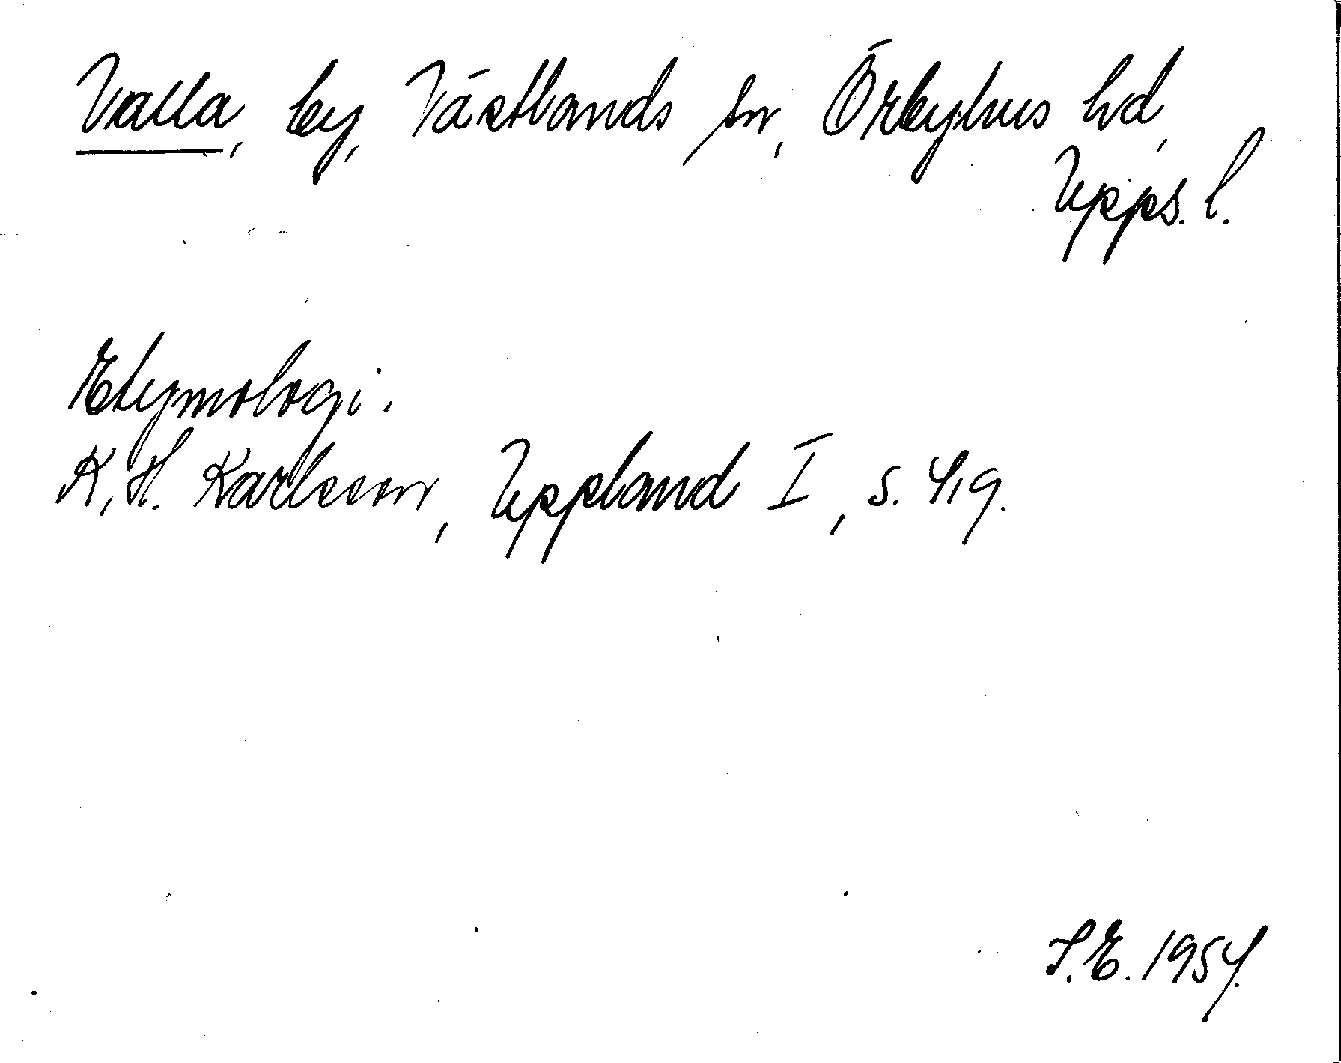 Valla, by, Västlands sn, Örbyhus hd,
Upps. l.
Etymologi.
K. H. Karlsson, Uppland I, s. 419.
S.E. 1954.